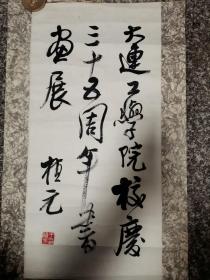 大連工學院校慶
三十五周年书
画展 植元